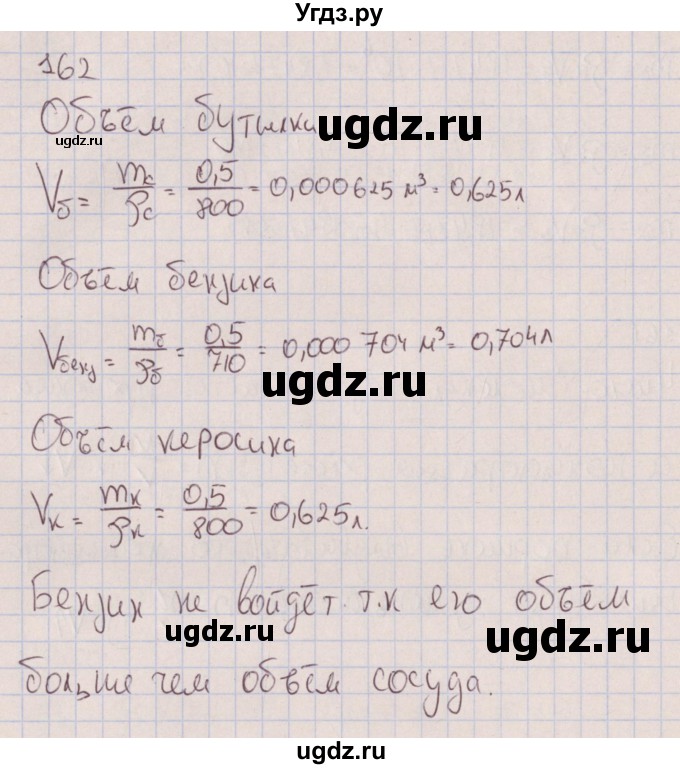 Угдз.ру
162
Объём бутылки
ugdz.ru
ugdz.ru
Vб = mс/ρс = 0,5/800 = 0,000625 м³ = 0,625 л
Объём бензина
Vбенз = mб/ρб = 0,5/710 = 0,000 704 м³ = 0,704 л
ugdz.ru
Объём керосина
Vк = mк/ρк = 0,5/800 = 0,625 л.
Бензин не войдёт т.к его объём
ugdz.ru
ugdz.ru
больше чем объём сосуда.
ugdz.ru